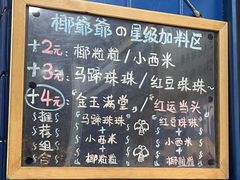 椰爷爷の星级加料区
+2元: 椰粒粒/小西米
+3元: 马蹄珠珠/红豆珠珠~
+4元: "金玉满堂" / 红运当头
推荐组合
马蹄珠珠
+
小西米
+
椰粒粒
红豆珠珠
+
小西米
+
椰粒粒